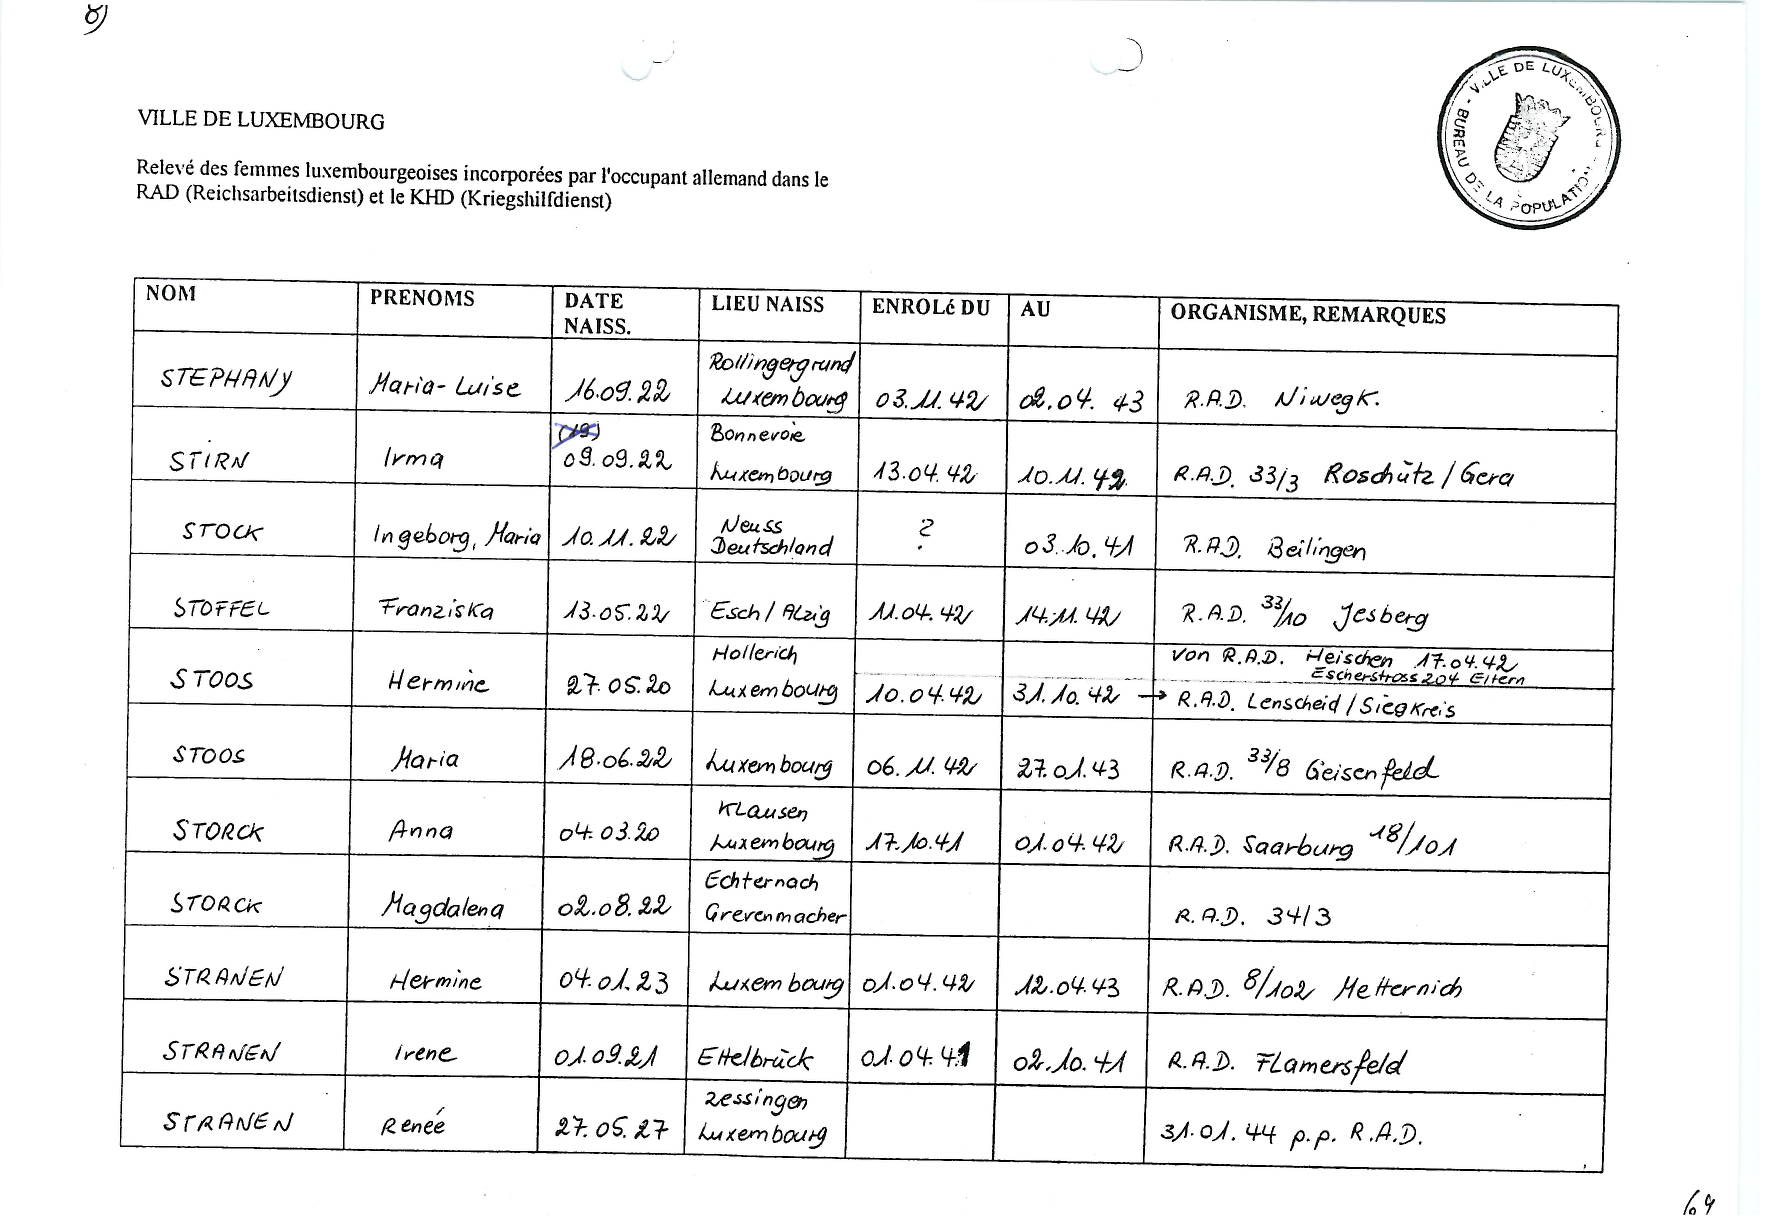 8)
VILLE DE LUXEMBOURG
Relevé des femmes luxembourgeoises incorporées par l'occupant allemand dans le
RAD (Reichsarbeitsdienst) et le KHD (Kriegshilfdienst)
VILLE DE LUXEMBOURG - BUREAU DE LA POPULATION
NOM PRENOMS DATE NAISS. LIEU NAISS ENROLé DU AU ORGANISME, REMARQUES
STEPHANY Maria-Luise 16.09.22 Rollingergrund Luxembourg 03.11.42 02.04.43 R.A.D. Niwegk.
STIRN Irma (19) 09.09.22 Bonnevoie Luxembourg 13.04.42 10.11.42 R.A.D. 33/3 Roschütz/Gera
STOCK Ingeborg, Maria 10.11.22 Neuss Deutschland ? 03.10.41 R.A.D. Beilingen
STOFFEL Franziska 13.05.22 Esch/Alzig 11.04.42 14.11.42 R.A.D. 33/10 Jesberg
STOOS Hermine 27.05.20 Hollerich Luxembourg 10.04.42 31.10.42 von R.A.D. Heischen 17.04.42
Escherstross 204 Eltern
→ R.A.D. Lenscheid/Siegkreis
STOOS Maria 18.06.22 Luxembourg 06.11.42 27.01.43 R.A.D. 33/8 Geisenfeld
STORCK Anna 04.03.20 Klausen Luxembourg 17.10.41 01.04.42 R.A.D. Saarburg 18/101
STORCK Magdalena 02.08.22 Echternach Grevenmacher R.A.D. 34/3
STRANEN Hermine 04.01.23 Luxembourg 01.04.42 12.04.43 R.A.D. 8/102 Metternich
STRANEN Irene 01.09.21 Ettelbrück 01.04.41 02.10.41 R.A.D. Flamersfeld
STRANEN Renée 27.05.27 Zessingen Luxembourg 31.01.44 p.p. R.A.D.
69